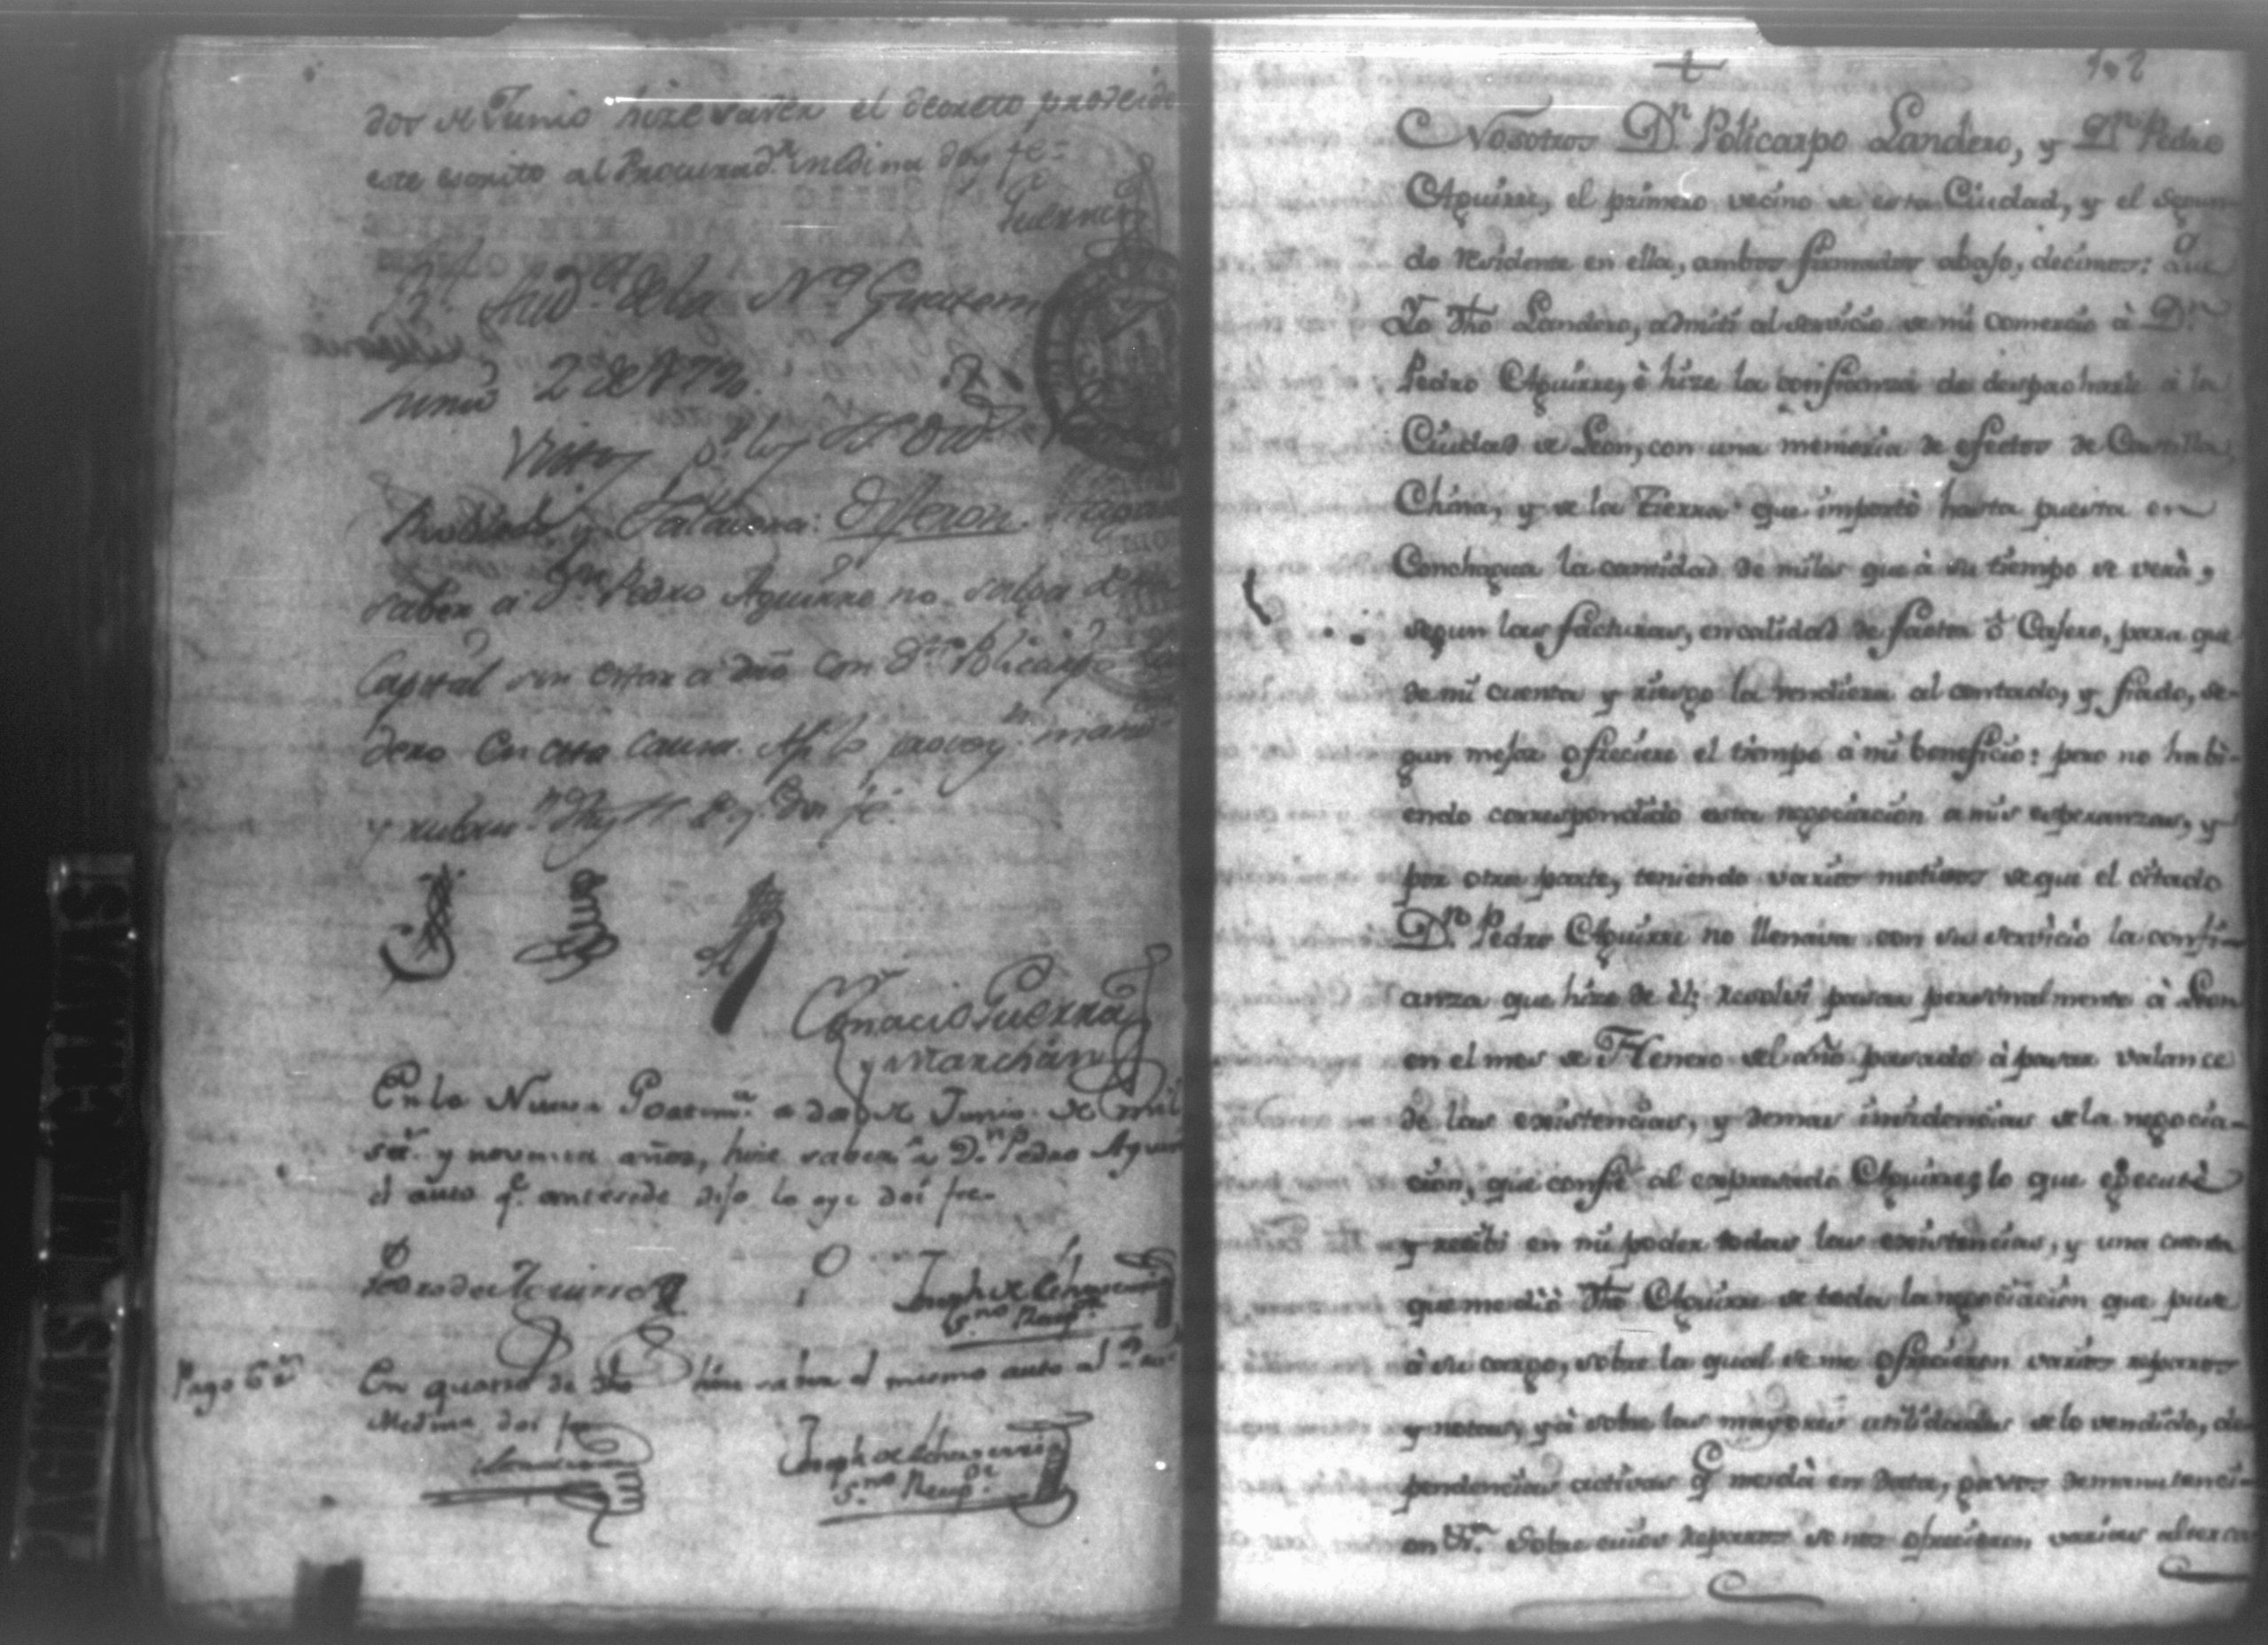 dos de Junio hize saver el decreto proveido
este escrito al Procurad.r Medina doy fe=
Guerra
R.l Aud.a de la N.a Guatem
Junio 2 de 1790.
Vistos p.r los SS.
y Talavera: Dijeron: se haga
saber a D.n Pedro Aguirre no salga de esta
Capital sin estar a dro con D.n Policarpo Lan
dero en esta causa. Asi lo proveyn. mand.n
y rubrn. doi fé.
Ignacio Guerra
y Marchán
En la Nueva Goatem.a a dos de Junio de mil
set.s y noventa años, hice saber a D.n Pedro Aguirre
el auto q.e antecede dijo lo oye doi fee.
Pedro de Aguirre
Joseph de Echeverria
S.no Recep.or
Pago 6 r.s
En quatro de dho hice saber el mismo auto al Proc.r
Medina doi fee
Medina
Joseph de Echeverria
S.no Recep.or
182
Nosotros D.n Policarpo Landero, y D.n Pedro
Aguirre, el primero vecino de esta Ciudad, y el Segun-
do residente en ella, ambos firmados abajo, decimos: Que
Yo dho Landero, admití al servicio de mi comercio à D.n
Pedro Aguirre, è hize la confianza de despacharle a la
Ciudad de Leon, con una memoria de efectos de Castilla,
China, y de la Tierra que importò hasta puesta en
Conchagua la cantidad de miles que à su tiempo se verà,
segun las facturas, en calidad de factor ò Cajero, para que
de mi cuenta y riesgo la vendiera al contado, y fiado, se-
gun mejor ofreciere el tiempo à mi beneficio: pero no habi-
endo correspondido esta negociacion a mis esperanzas, y
por otra parte, teniendo varios motivos de que el citado
D.n Pedro Aguirre no llenaba con su servicio la confi-
anza que hize de èl; resolví pasar personalmente à Leon
en el mes de Henero del año pasado à pasar valance
de las existencias, y demas insidencias de la negocia-
cion, que confié al expresado Aguirre; lo que egecutè
y recibí en mi poder todas las existencias, y una cuenta
que me diò dho Aguirre de toda la negociacion que puse
à su cargo, sobre la qual se me ofrecieron varios reparos
y notas, yà sobre las mayores utilidades de lo vendido, de-
pendencias activas q.e me dà en data, gastos de manutenci-
on &.a Sobre cuios reparos se nos ofrecieron varias alterca